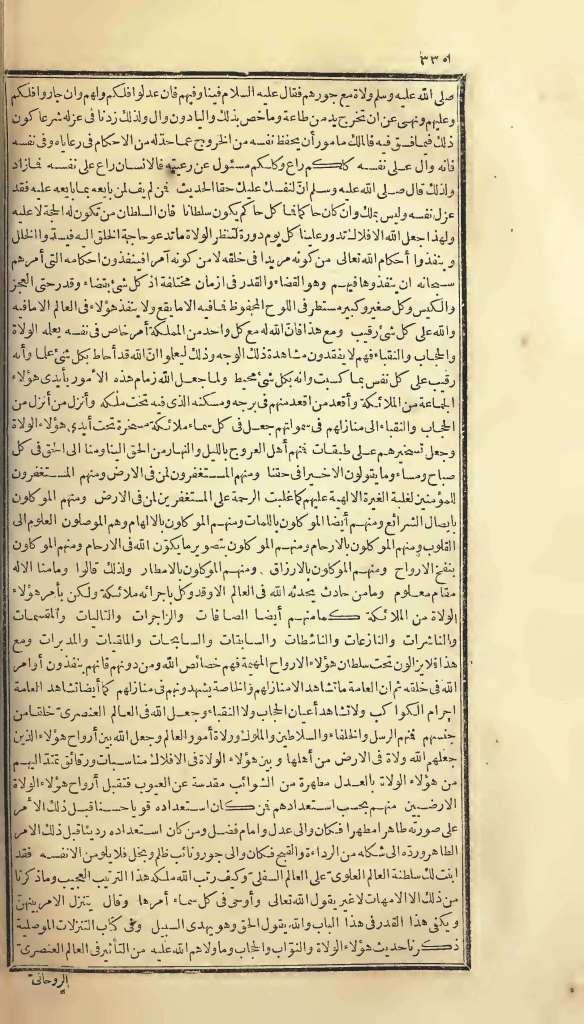 ٣٣٥١
صلى الله عليه وسلم ولاة مع جورهم فقال عليه السلام فيناوفيهم فان عدلوا فلكم ولهم وان جاروا فلكم
وعليهم ونهى عن ان تخرج يد من طاعة وما خص بذلك واليا دون وال ولذلك زدنا فى عزله شرعا كون
ذلك فيما فسق فيه فالملك مأمور أن يحفظ نفسه من الخروج عما حد له من الاحكام فى رعاياه وفى نفسه
فانه وال على نفسه كلكم راع وكلكم مسئول عن رعيته فالانسان راع على نفسه فمازاد
ولذلك قال صلى الله عليه وسلم ان لنفسك عليك حقا الحديث فمن لم يف لمن بايعه بما بايعه عليه فقد
عزل نفسه وليس بملك وان كان حاكما فما كل حاكم يكون سلطانا فان السلطان من تكون له الحجة لا عليه
ولهذا جعل الله الافلاك تدور علينا كل يوم دورة لتنظر الولاة ما تدعو حاجة الخلق اليه فيسدوا الخلل
وينفذوا أحكام الله تعالى من كونه مريدا فى خلقه لا من كونه آمرا فينفذون احكامه التى أمرهم
سبحانه ان ينفذوها فيهم وهو القضاء والقدر فى ازمان مختلفة اذ كل شئ بقضاء وقدر حتى العجز
والكيس وكل صغير وكبير مستطر فى اللوح المحفوظ فما فيه الا ما يقع ولا ينفذ هؤلاء فى العالم الا ما فيه
والله على كل شئ رقيب ومع هذا فان لله مع كل واحد من المملكة أمر خاص فى نفسه يعلمه الولاة
والحجاب والنقباء فهم لا يفقدون مشاهدة ذلك الوجه وذلك ليعلموا ان الله قد أحاط بكل شئ علما وأنه
رقيب على كل نفس بما كسبت وانه بكل شئ محيط ولما جعل الله زمام هذه الأمور بأيدى هؤلاء
الجماعة من الملائكة وأقعد من اقعد منهم فى برجه ومسكنه الذى فيه تخت ملكه وأنزل من أنزل من
الحجاب والنقباء الى منازلهم فى سمواتهم جعل فى كل سماء ملائكة مسخرة تحت أيدى هؤلاء الولاة
وجعل تسخيرهم على طبقات فمنهم أهل العروج بالليل والنهار من الحق الينا ومنا الى الحق فى كل
صباح ومساء وما يقولون الا خيرا فى حقنا ومنهم المستغفرون لمن فى الارض ومنهم المستغفرون
للمؤمنين لغلبة الغيرة الالهية عليهم كما غلبت الرحمة على المستغفرين لمن فى الارض ومنهم الموكلون
بايصال الشرائع ومنهم أيضا الموكلون باللمات ومنهم الموكلون بالالهام وهم الموصلون العلوم الى
القلوب ومنهم الموكلون بالارحام ومنهم الموكلون بتصوير ما يكوّن الله فى الارحام ومنهم الموكلون
بنفخ الارواح ومنهم الموكلون بالارزاق ومنهم الموكلون بالامطار ولذلك قالوا وما منا الا له
مقام معلوم وما من حادث يحدثه الله فى العالم الا وقد وكل باجرائه ملائكة ولكن بأمر هؤلاء
الولاة من الملائكة كما منهم أيضا الصافات والزاجرات والتاليات والمقسمات
والناشرات والنازعات والناشطات والسابقات والسابحات والملقيات والمدبرات ومع
هذا فلا يزالون تحت سلطان هؤلاء الارواح المهيمة فهم خصائص الله ومن دونهم فانهم ينفذون أوامر
الله فى خلقه ثم ان العامة ما تشاهد الا منازلهم والخاصة يشهدونهم فى منازلهم كما أيضا تشاهد العامة
اجرام الكواكب ولا تشاهد أعيان الحجاب ولا النقباء وجعل الله فى العالم العنصرى خلقا من
جنسهم فمنهم الرسل والخلفاء والسلاطين والملوك وولاة أمور العالم وجعل الله بين أرواح هؤلاء الذين
جعلهم الله ولاة فى الارض من أهلها وبين هؤلاء الولاة فى الافلاك مناسبات ورقائق تمتد اليهم
من هؤلاء الولاة بالعدل مطهرة من الشوائب مقدسة عن العيوب فتقبل أرواح هؤلاء الولاة
الارضيين منهم بحسب استعدادهم فمن كان استعداده قويا حسنا قبل ذلك الأمر
على صورته طاهرا مطهرا فكان والى عدل وامام فضل ومن كان استعداده رديئا قبل ذلك الامر
الطاهر ورده الى شكله من الرداءة والقبح فكان والى جور ونائب ظلم وبخل فلا يلومن الا نفسه فقد
ابنت لك سلطنة العالم العلوى على العالم السفلى وكيف رتب الله ملكه هذا الترتيب العجيب وما ذكرنا
من ذلك الا الامهات لا غير يقول الله تعالى وأوحى فى كل سماء أمرها وقال يتنزل الامر بينهن
ويكفى هذا القدر فى هذا الباب والله يقول الحق وهو يهدى السبيل وفى كتاب التنزلات الموصلية
ذكرنا حديث هؤلاء الولاة والنوّاب والحجاب وما ولاهم الله عليه من التأثير فى العالم العنصرى
الروحانى